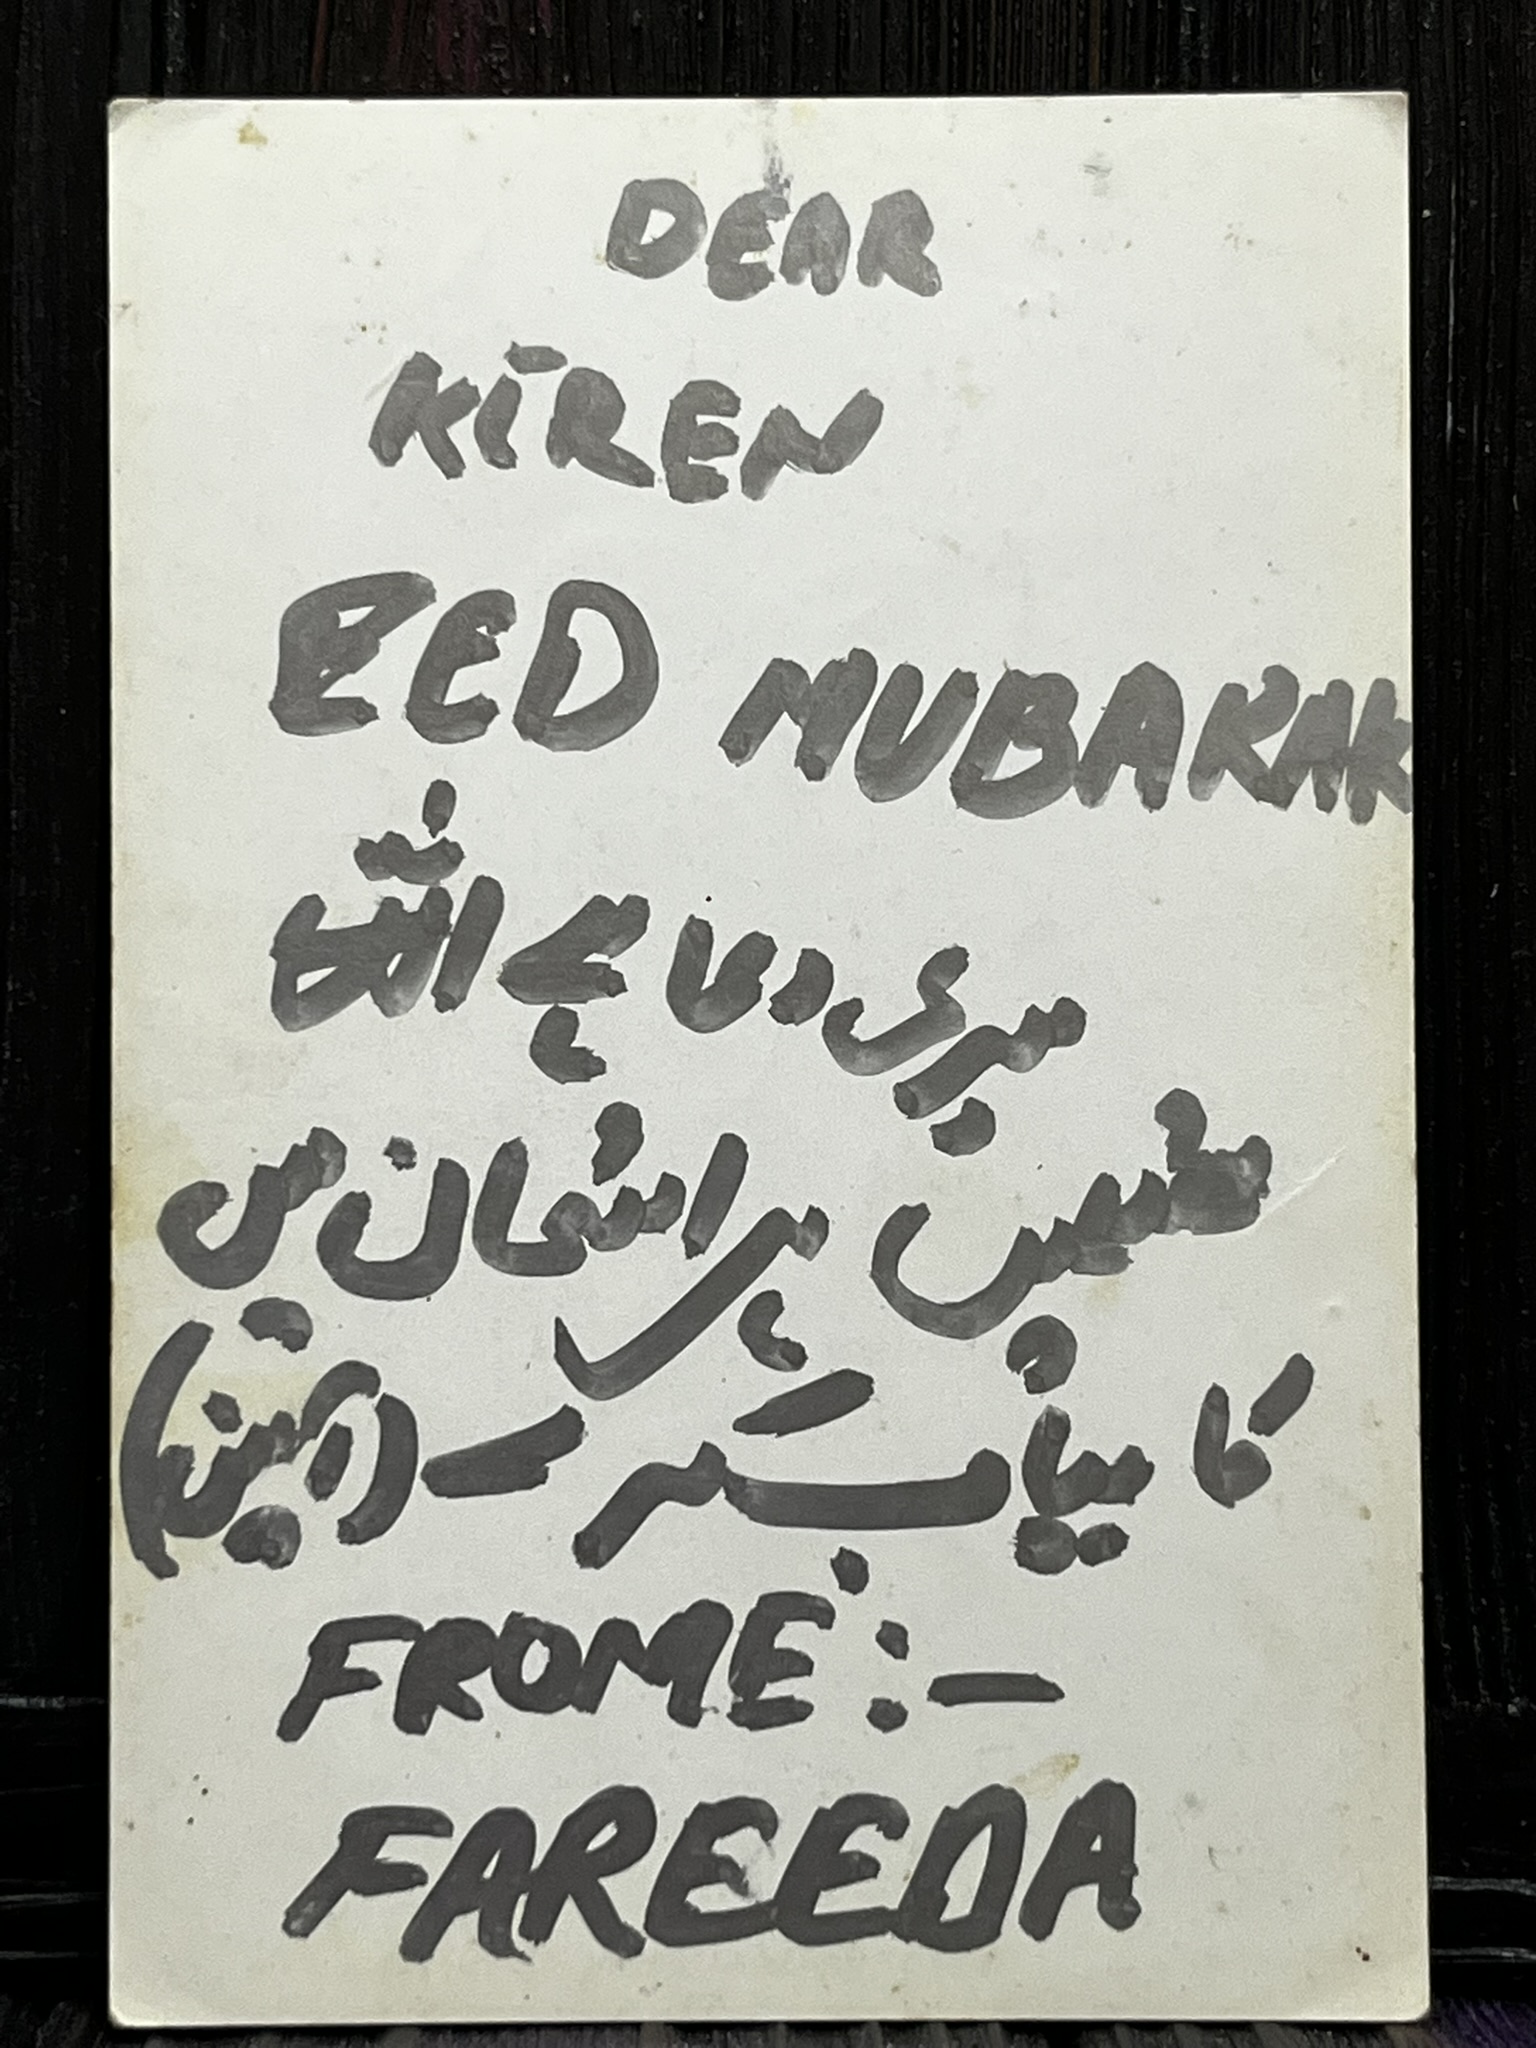 DEAR
KIREN
EED MUBARAK
میری دعا ہے اللہ
تمہیں ہر امتحان میں
کامیاب کرے - (آمین)
FROME :-
FAREEDA